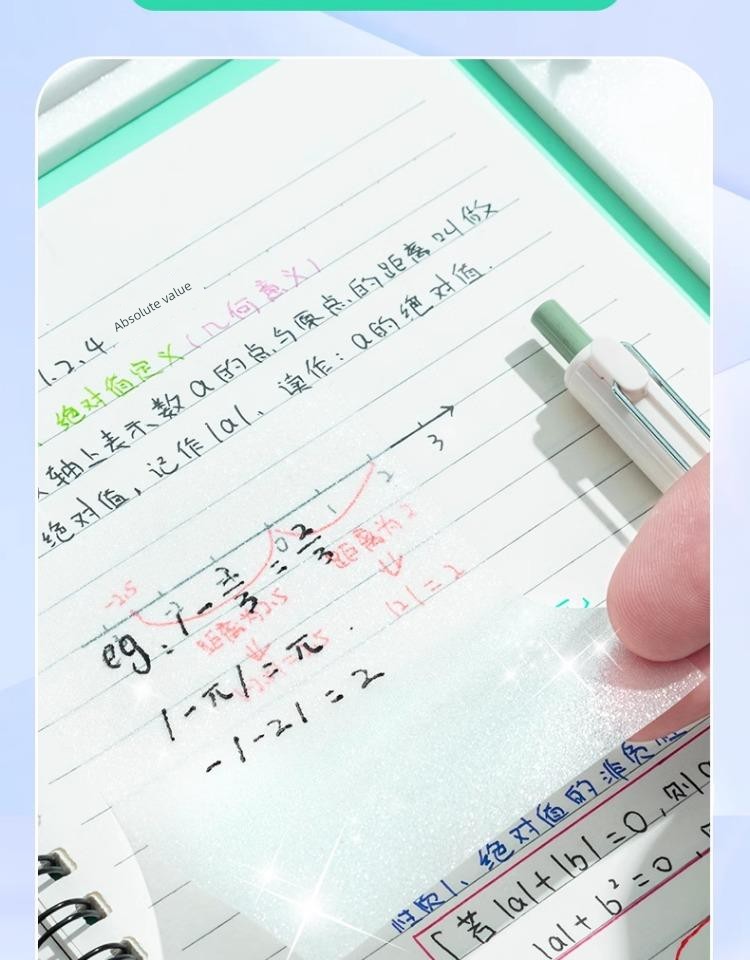 1.2.4 Absolute value
绝对值定义(几何意义)
轴上表示数a的点与原点的距离叫做
绝对值,记作|a|. 读作:a的绝对值.
3
2
1
0
-2.5
距离为2
|2|=2
距离为2.5
eg: 
=2/3
|-π|=π.
-|-2|=2
性质1、绝对值的非负性
若|a|+|b|=0,则a
|a|+b²=0,